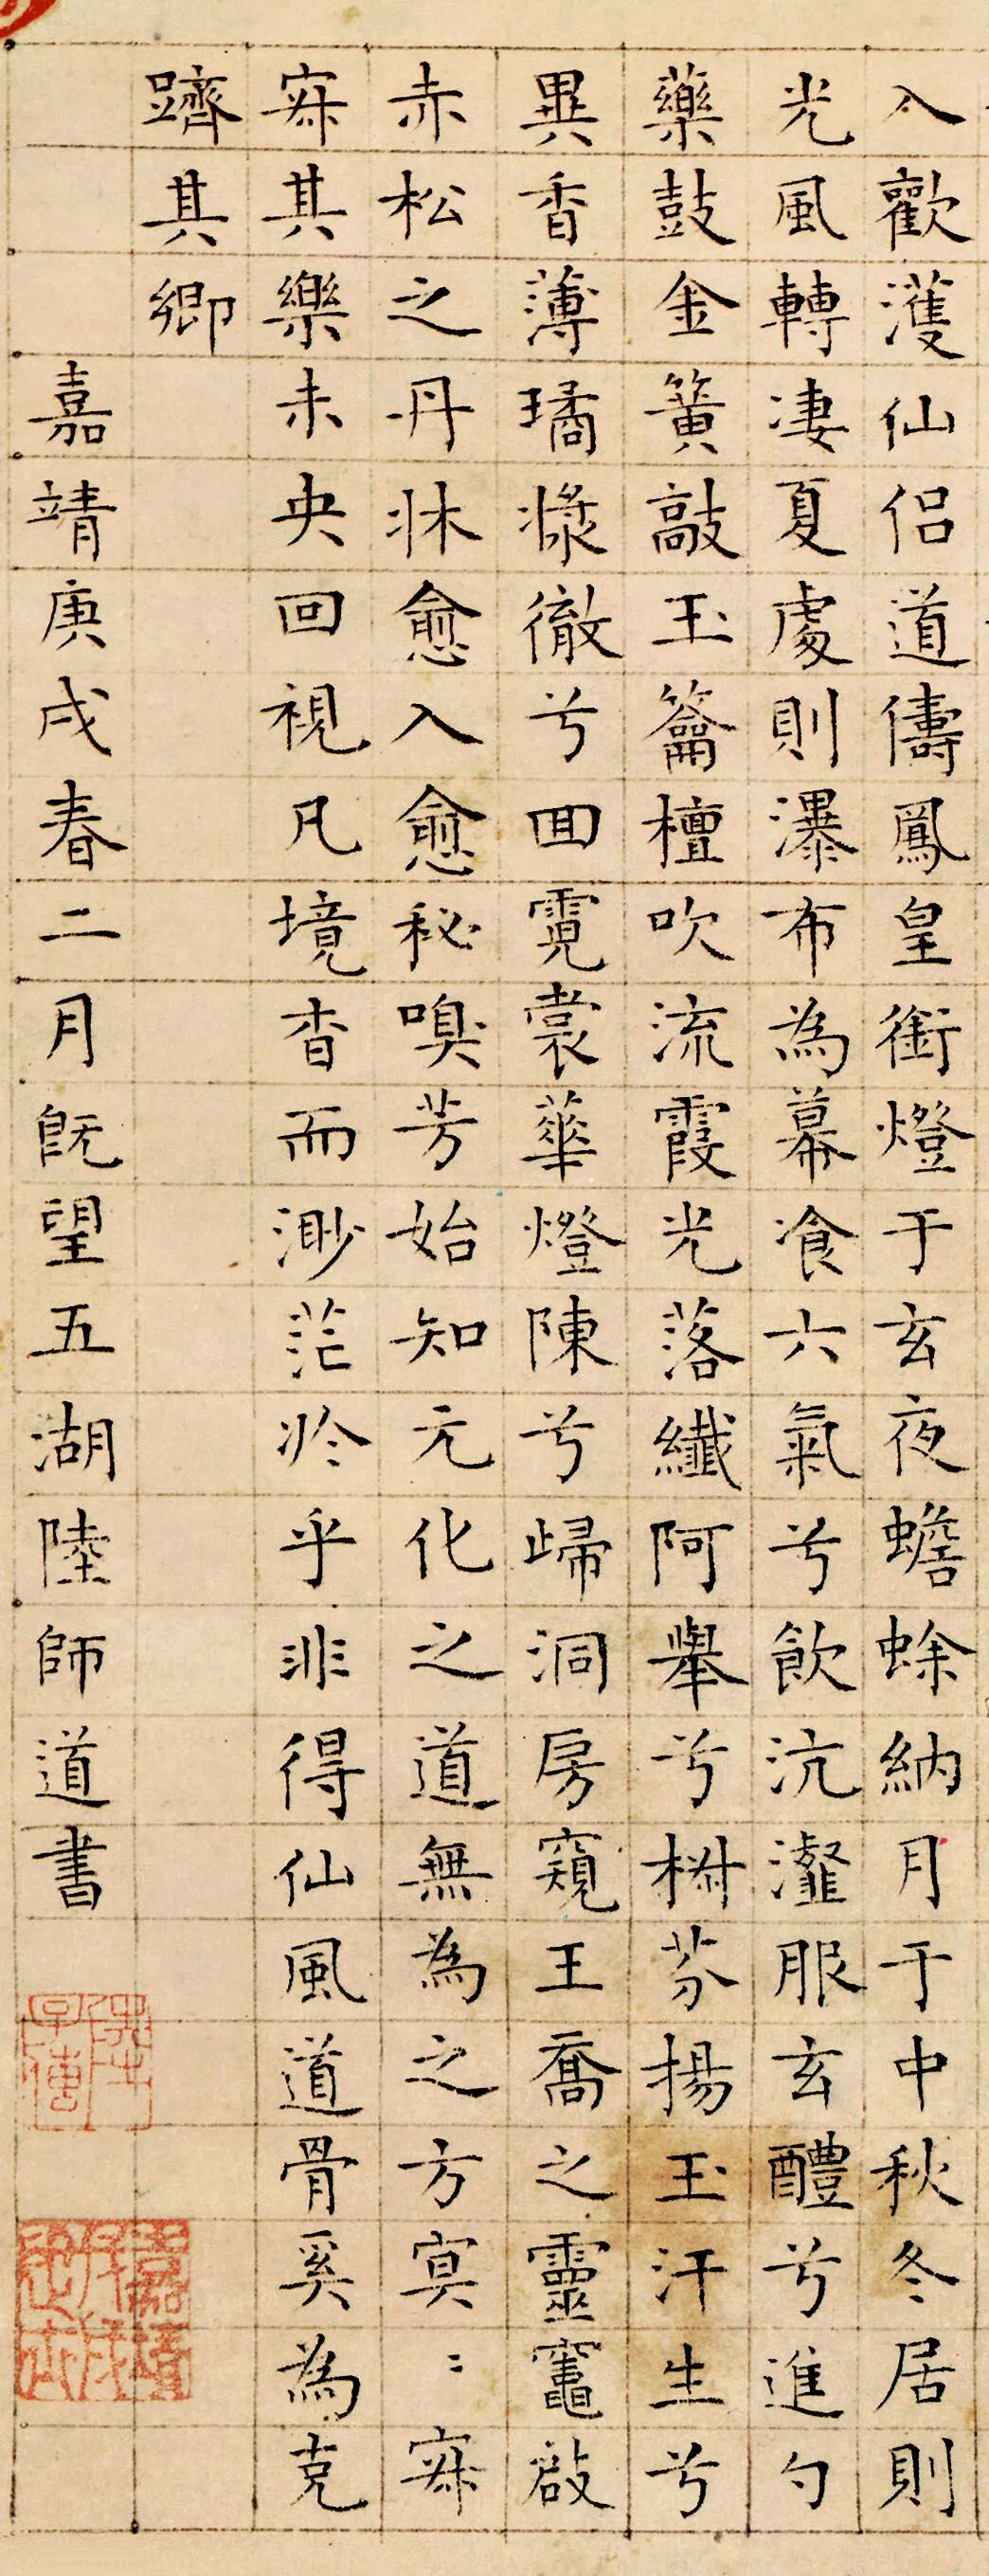 入歡濩仙侶道儔鳳皇銜燈于玄夜蟾蜍納月于中秋冬居則
光風轉凄夏處則瀑布為幕飡六氣兮飲沆瀣服玄醴兮進勺
藥鼓金簧敲玉籥檀吹流霞光落纖阿舉兮樹芬揚玉汗生兮
異香薄璚漿徹兮回霓裳華燈陳兮歸洞房窺王喬之靈竈啟
赤松之丹牀愈入愈秘嗅芳始知元化之道無為之方寞〻寂
寂其樂未央回視凡境杳而渺茫於乎非得仙風道骨奚為克
躋其鄉
嘉靖庚戌春二月既望五湖陸師道書